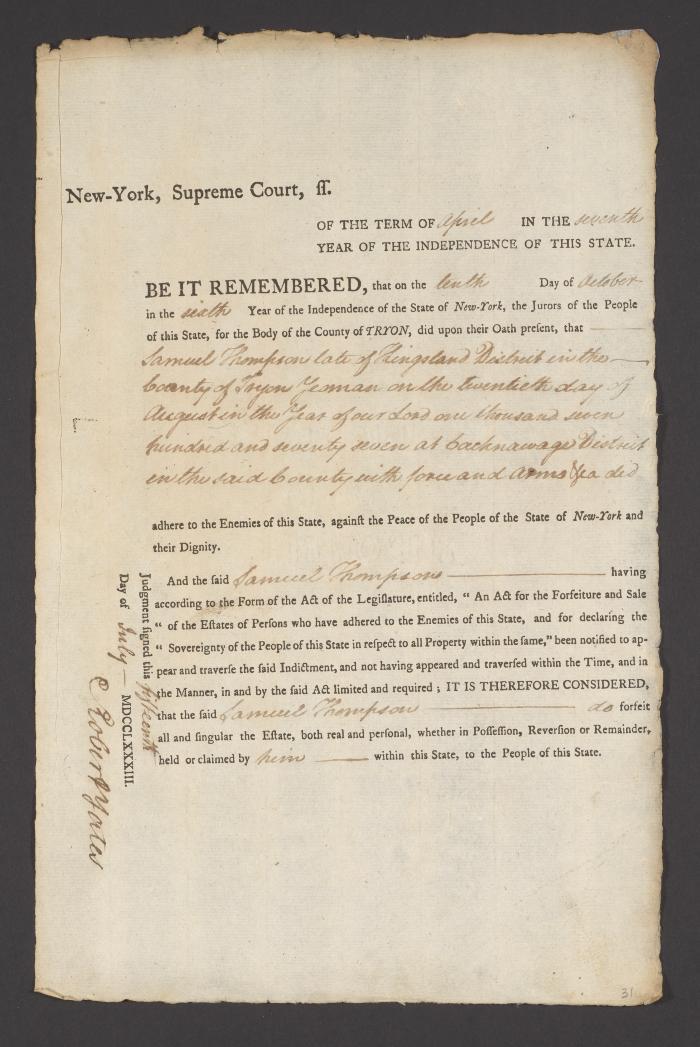 New-York, Supreme Court, ſſ.
OF THE TERM OF April IN THE seventh
YEAR OF THE INDEPENDENCE OF THIS STATE.
BE IT REMEMBERED, that on the tenth Day of October
in the sixth Year of the Independence of the State of New-York, the Jurors of the People
of this State, for the Body of the County of TRYON, did upon their Oath preſent, that
Samuel Thompson late of Kingsland District in the
County of Tryon Yeoman on the twentieth day of
August in the Year of our Lord one thousand seven
hundred and seventy seven at Cachnawage District
in the said County with force and Arms &ca did
adhere to the Enemies of this State, againſt the Peace of the People of the State of New-York and
their Dignity.
And the ſaid Samuel Thompson having
according to the Form of the Act of the Legiſlature, entitled, “ An Act for the Forfeiture and Sale
“ of the Eſtates of Perſons who have adhered to the Enemies of this State, and for declaring the
“ Sovereignty of the People of this State in reſpect to all Property within the ſame,” been notified to ap-
pear and traverſe the ſaid Indictment, and not having appeared and traverſed within the Time, and in
the Manner, in and by the ſaid Act limited and required ; IT IS THEREFORE CONSIDERED,
that the ſaid Samuel Thompson do forfeit
all and ſingular the Eſtate, both real and perſonal, whether in Poſſeſſion, Reverſion or Remainder,
held or claimed by him within this State, to the People of this State.
Judgment ſigned this fifteenth
Day of July MDCCLXXXIII.
Robert Yates
31